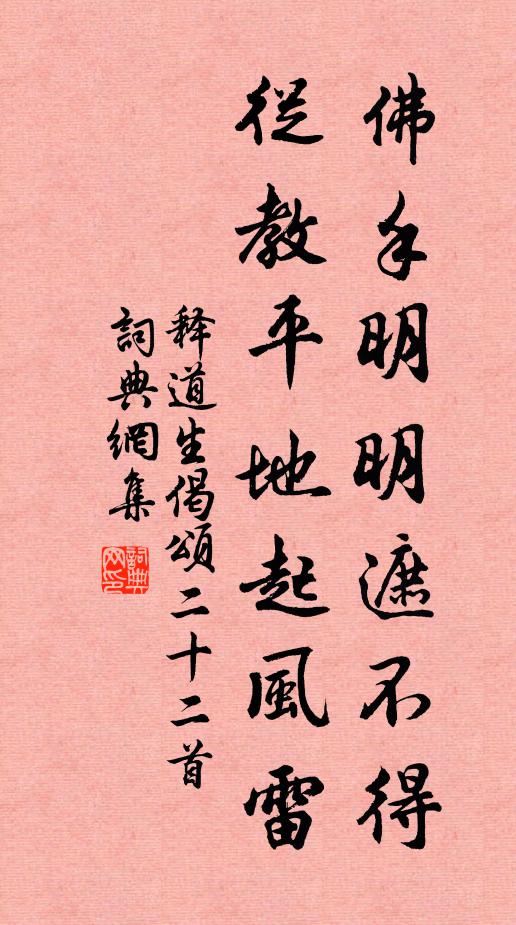 佛手明明遮不得
從教平地起風雷
释道生偈頌二十二首
詞典網集
詞典
网印